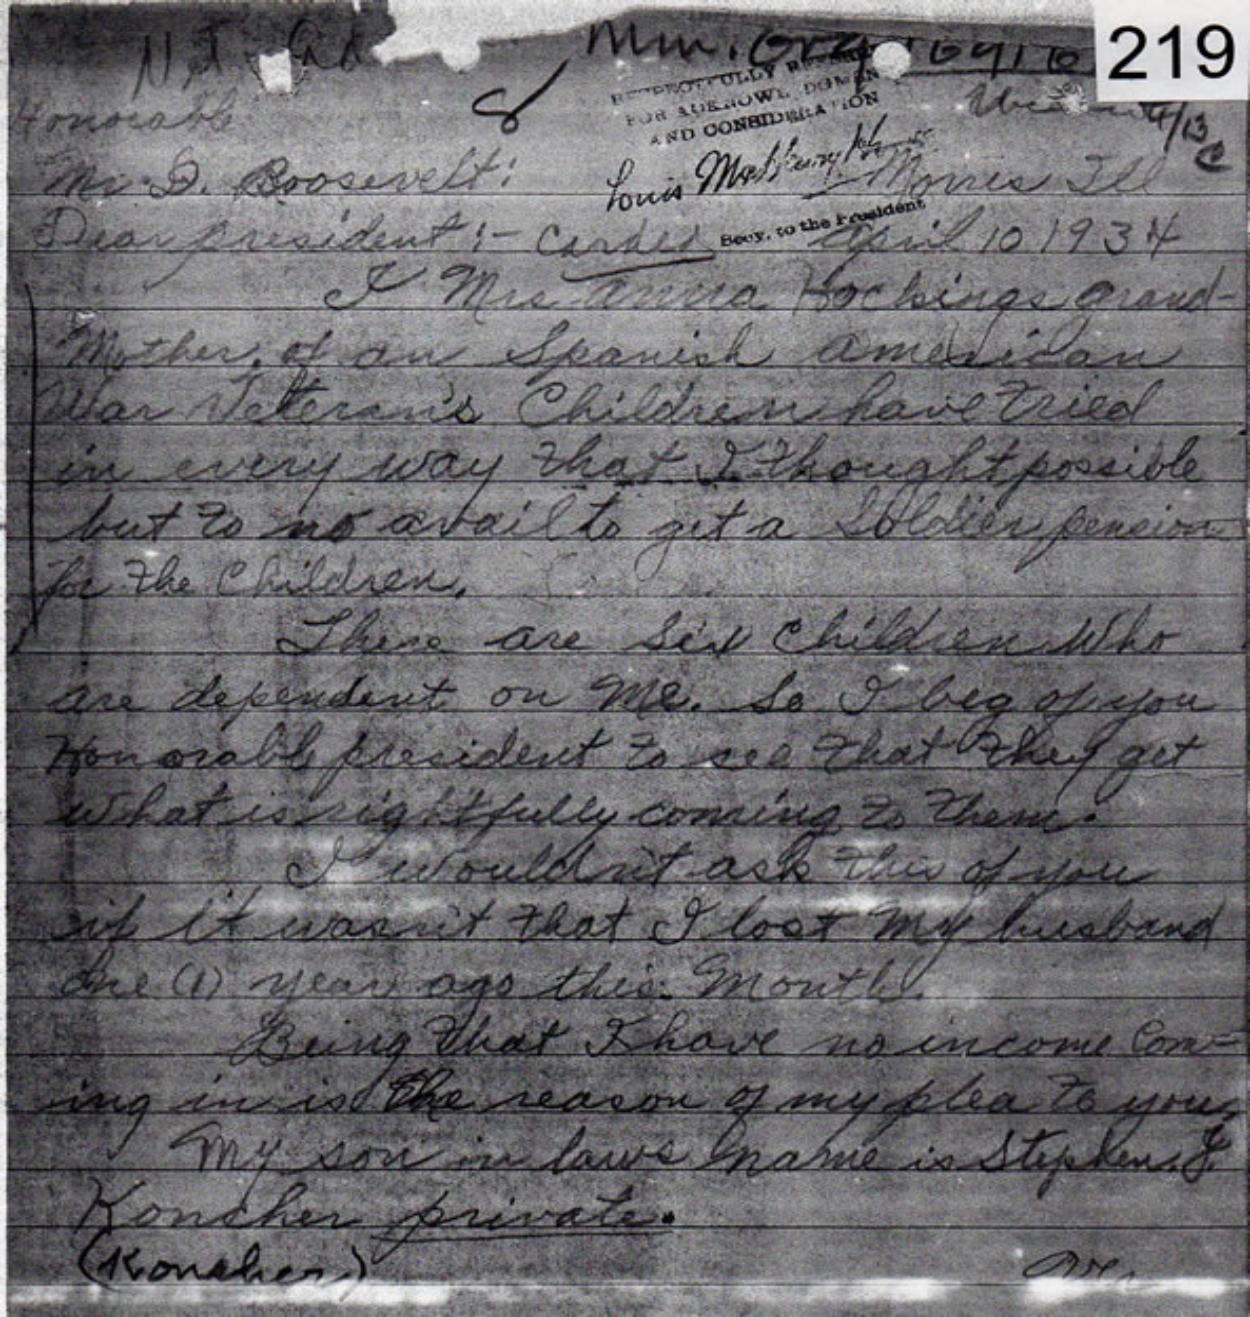 219
Honorable
RESPECTFULLY
FOR
AND CONSIDERATION
Mr. D. Roosevelt:
Louis
Morris Ill
Dear president:- carded april 10 1934
Secy. to the President
I Mrs anna Hockings grand-
Mother of an Spanish american
War Veteran's Children have tried
in every way that I thought possible
but to no avail to get a Soldier pension
for the Children.
There are six children who
are dependent on Me. So I beg of you
Honorable president to see that they get
what is rightfully coming to them.
I wouldn't ask this of you
if it wasn't that I lost my husband
one (1) year ago this Month.
Being that I have no income com-
ing in is the reason of my plea to you,
My son in laws name is Stephen J.
Koncher private.
(Koncher)
over